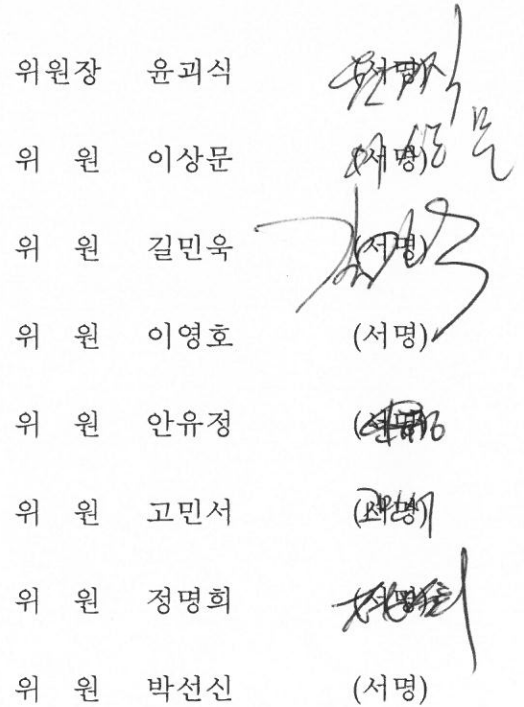 위원장 윤괴식 (서명)
위 원 이상문 (서명)
위 원 길민욱 (서명)
위 원 이영호 (서명)
위 원 안유정 (서명)
위 원 고민서 (서명)
위 원 정명희 (서명)
위 원 박선신 (서명)